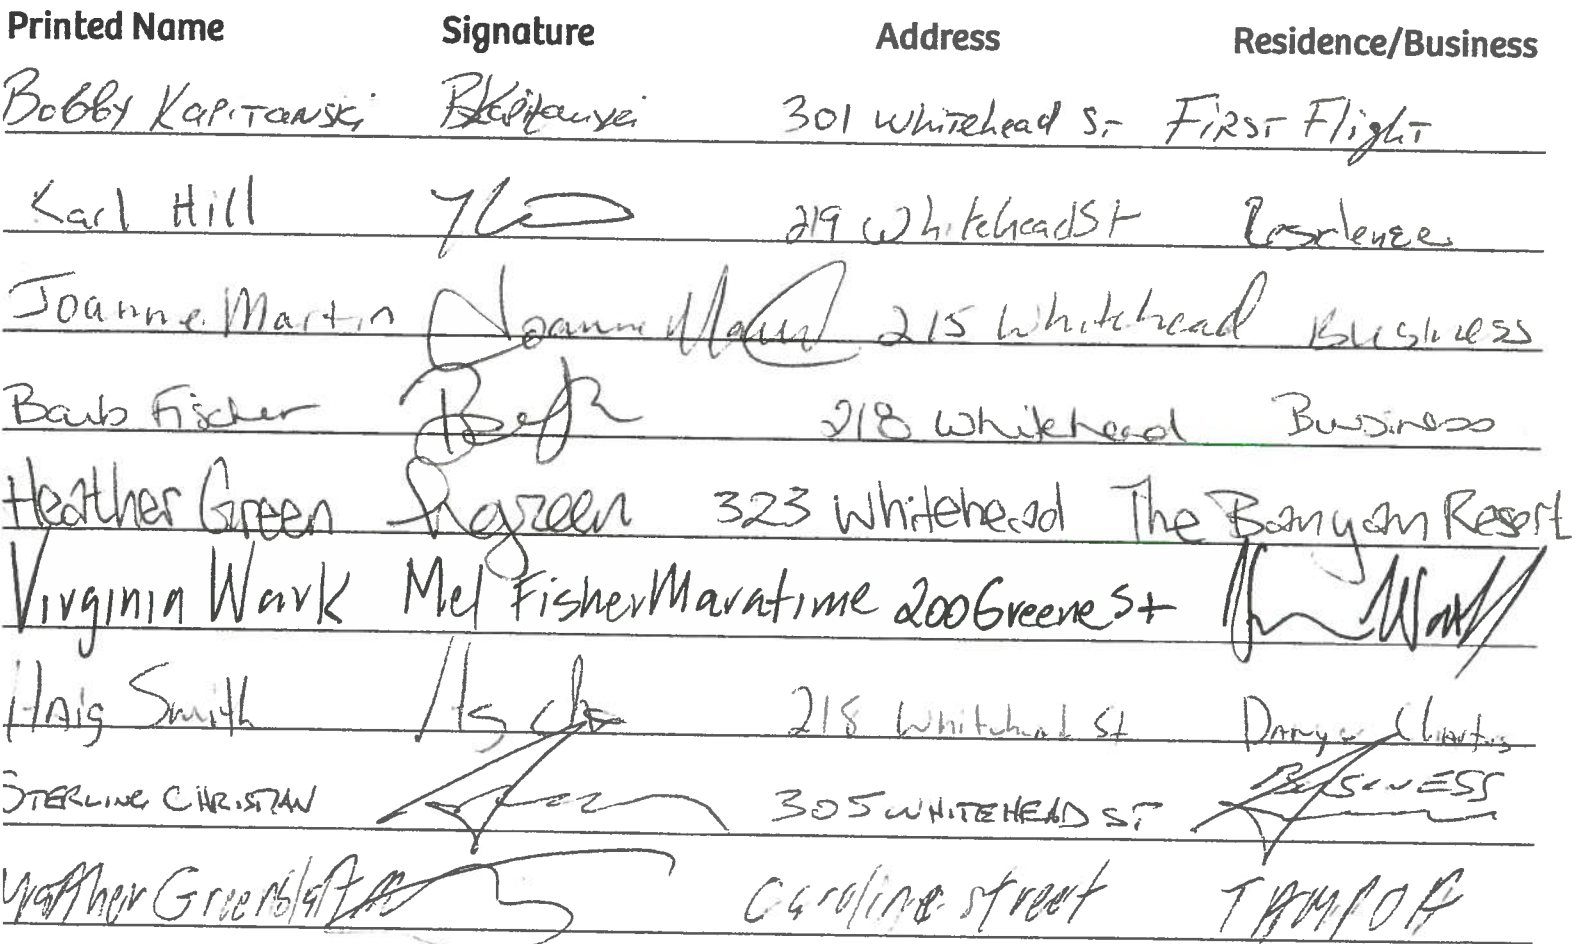 Printed Name Signature Address Residence/Business
Bobby Kapitanski BKapitanski 301 Whitehead St First Flight
Karl Hill 219 Whitehead St Residence
Joanne Martin Joanne Martin 215 Whitehead Business
Barb Fischer 218 Whitehead Business
Heather Green hgreen 323 Whitehead The Banyan Resort
Virginia Wark Mel Fisher Maratime 200 Greene St
Haig Smith 218 Whitehead St Danger Charters
STERLING CHRISTIAN 305 WHITEHEAD ST BUSINESS
Matthew Greenblatt Caroline street